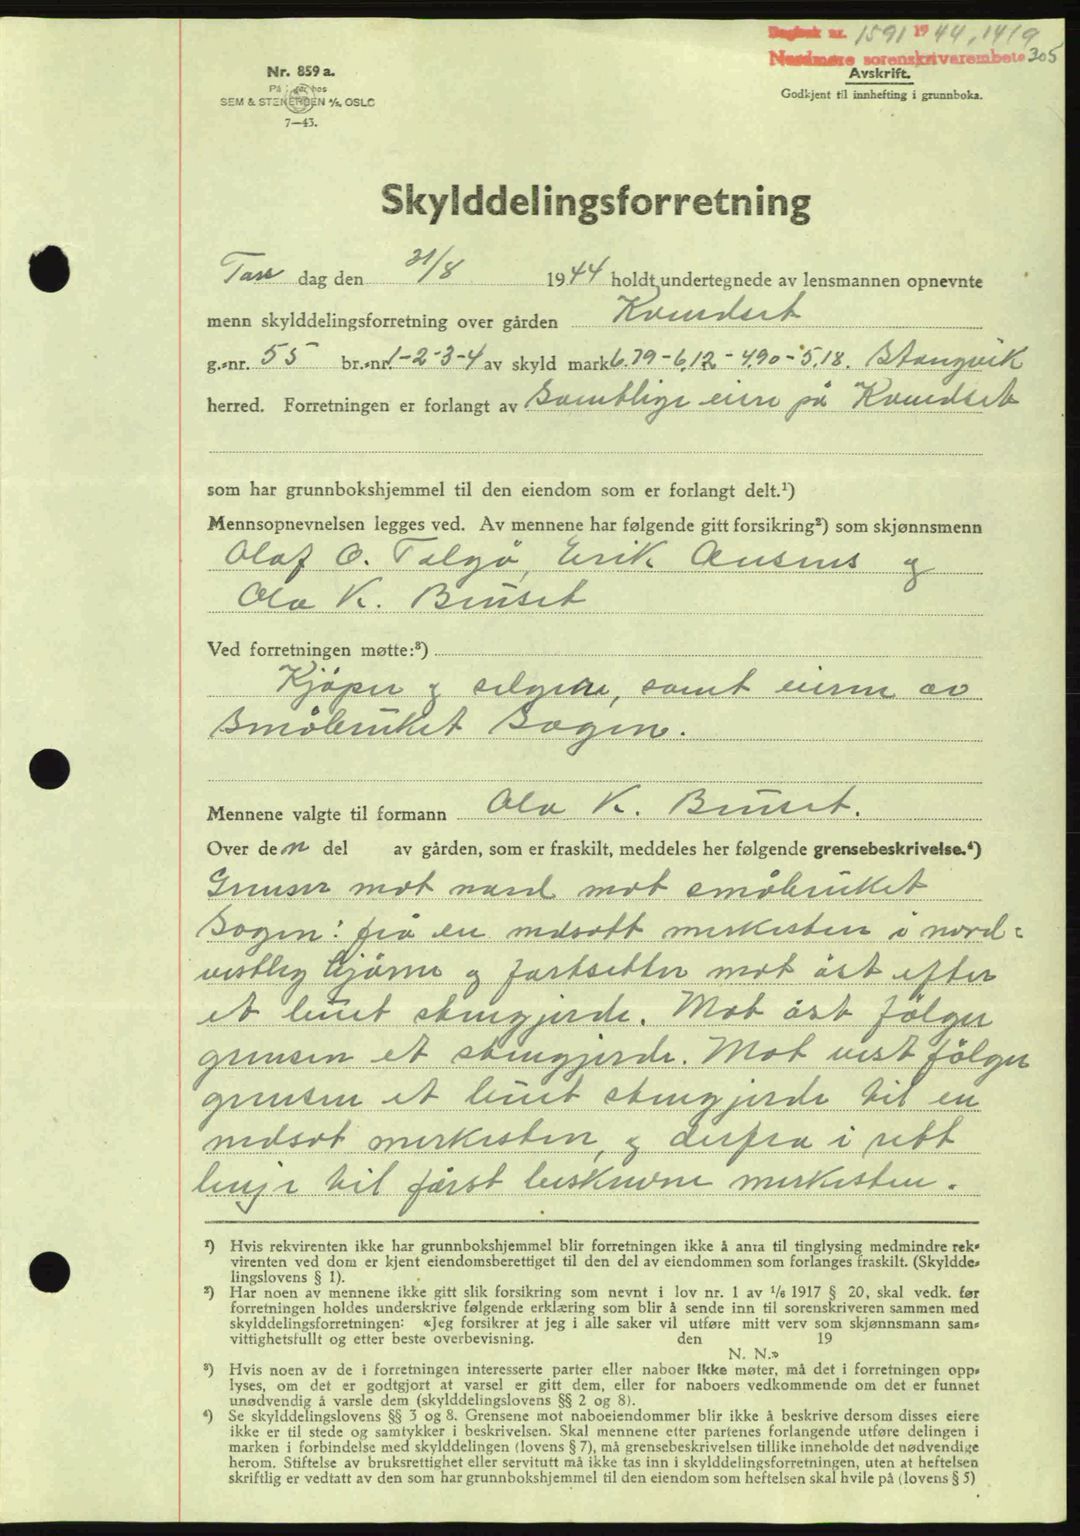 Dagbok nr. 1591 19 44, 1419
Nordmøre sorenskriverembete 305
Nr. 859 a.
På lager hos
SEM & STENERSEN A/S, OSLO
7—43.
Avskrift.
Godkjent til innhefting i grunnboka.
Skylddelingsforretning
dag den 31/8 1944 holdt undertegnede av lensmannen opnevnte
menn skylddelingsforretning over gården Kvendset
g.-nr. 55 br.-nr. 1-2-3-4 av skyld mark 6.79-6,12-4,90-5,18. Stangvik
herred. Forretningen er forlangt av Samtlige eiere på Kvendset
som har grunnbokshjemmel til den eiendom som er forlangt delt.¹)
Mennsopnevnelsen legges ved. Av mennene har følgende gitt forsikring²) som skjønnsmenn
Olaf O. Talgø, Erik og
Ola K. Bruset
Ved forretningen møtte:³)
Kjøper og selgere, samt eierne av
Småbruket Bagen.
Mennene valgte til formann Ola K. Bruset.
Over den del av gården, som er fraskilt, meddeles her følgende grensebeskrivelse.⁴)
Grenser mot nord mot småbruket
Bagen: fra en nedsatt merkesten i nord-
vestlig hjørne og fortsetter mot øst efter
et stengjerde. Mot øst følger
grensen et stengjerde. Mot vest følger
grensen et stengjerde til en
nedsat merkesten, og derfra i rett
linje til først beskrevne merkesten.
¹) Hvis rekvirenten ikke har grunnbokshjemmel blir forretningen ikke å anta til tinglysing medmindre rek-
virenten ved dom er kjent eiendomsberettiget til den del av eiendommen som forlanges fraskilt. (Skyldde-
lingslovens § 1).
²) Har noen av mennene ikke gitt slik forsikring som nevnt i lov nr. 1 av 1/6 1917 § 20, skal vedk. før
forretningen holdes underskrive følgende erklæring som blir å sende inn til sorenskriveren sammen med
skylddelingsforretningen: «Jeg forsikrer at jeg i alle saker vil utføre mitt verv som skjønnsmann sam-
vittighetsfullt og etter beste overbevisning. den 19
N. N.»
³) Hvis noen av de i forretningen interesserte parter eller naboer ikke møter, må det i forretningen opp-
lyses, om det er godtgjort at varsel er gitt dem, eller for naboers vedkommende om det er funnet
unødvendig å varsle dem (skylddelingslovens §§ 2 og 8).
⁴) Se skylddelingslovens §§ 3 og 8. Grensene mot naboeiendommer blir ikke å beskrive dersom disses eiere
ikke er til stede og samtykker i beskrivelsen. Skal mennene etter partenes forlangende utføre delingen i
marken i forbindelse med skylddelingen (lovens § 7), må grensebeskrivelsen tillike inneholde det nødvendige
herom. Stiftelse av bruksrettighet eller servitutt må ikke tas inn i skylddelingsforretningen, uten at heftelsen
skriftlig er vedtatt av den som har grunnbokshjemmel til den eiendom som heftelsen skal hvile på (lovens § 5)